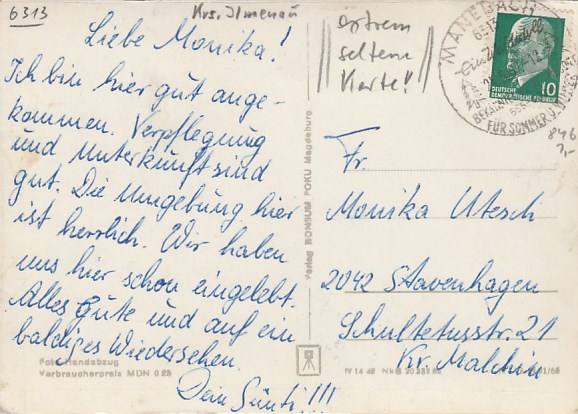 6313
Krs. Ilmenau
extrem
seltene
Karte!
Liebe Monika!
Ich bin hier gut ange-
kommen. Verpflegung
und Unterkunft sind
gut. Die Umgebung hier
ist herrlich. Wir haben
uns hier schon eingelebt.
Alles Gute und auf ein
baldiges Wiedersehen.
Dein Günti!!!
Foto-Handabzug
Verbraucherpreis MDN 0,25
Verlag KONSUM FOKU Magdeburg
MANEBACH
FÜR SOMMER U.
10
DEUTSCHE
DEMOKRATISCHE REPUBLIK
846
7,-
Fr.
Monika Utesch
2042 Stavenhagen
Schultetusstr. 21
Kr. Malchin
IV 14 48